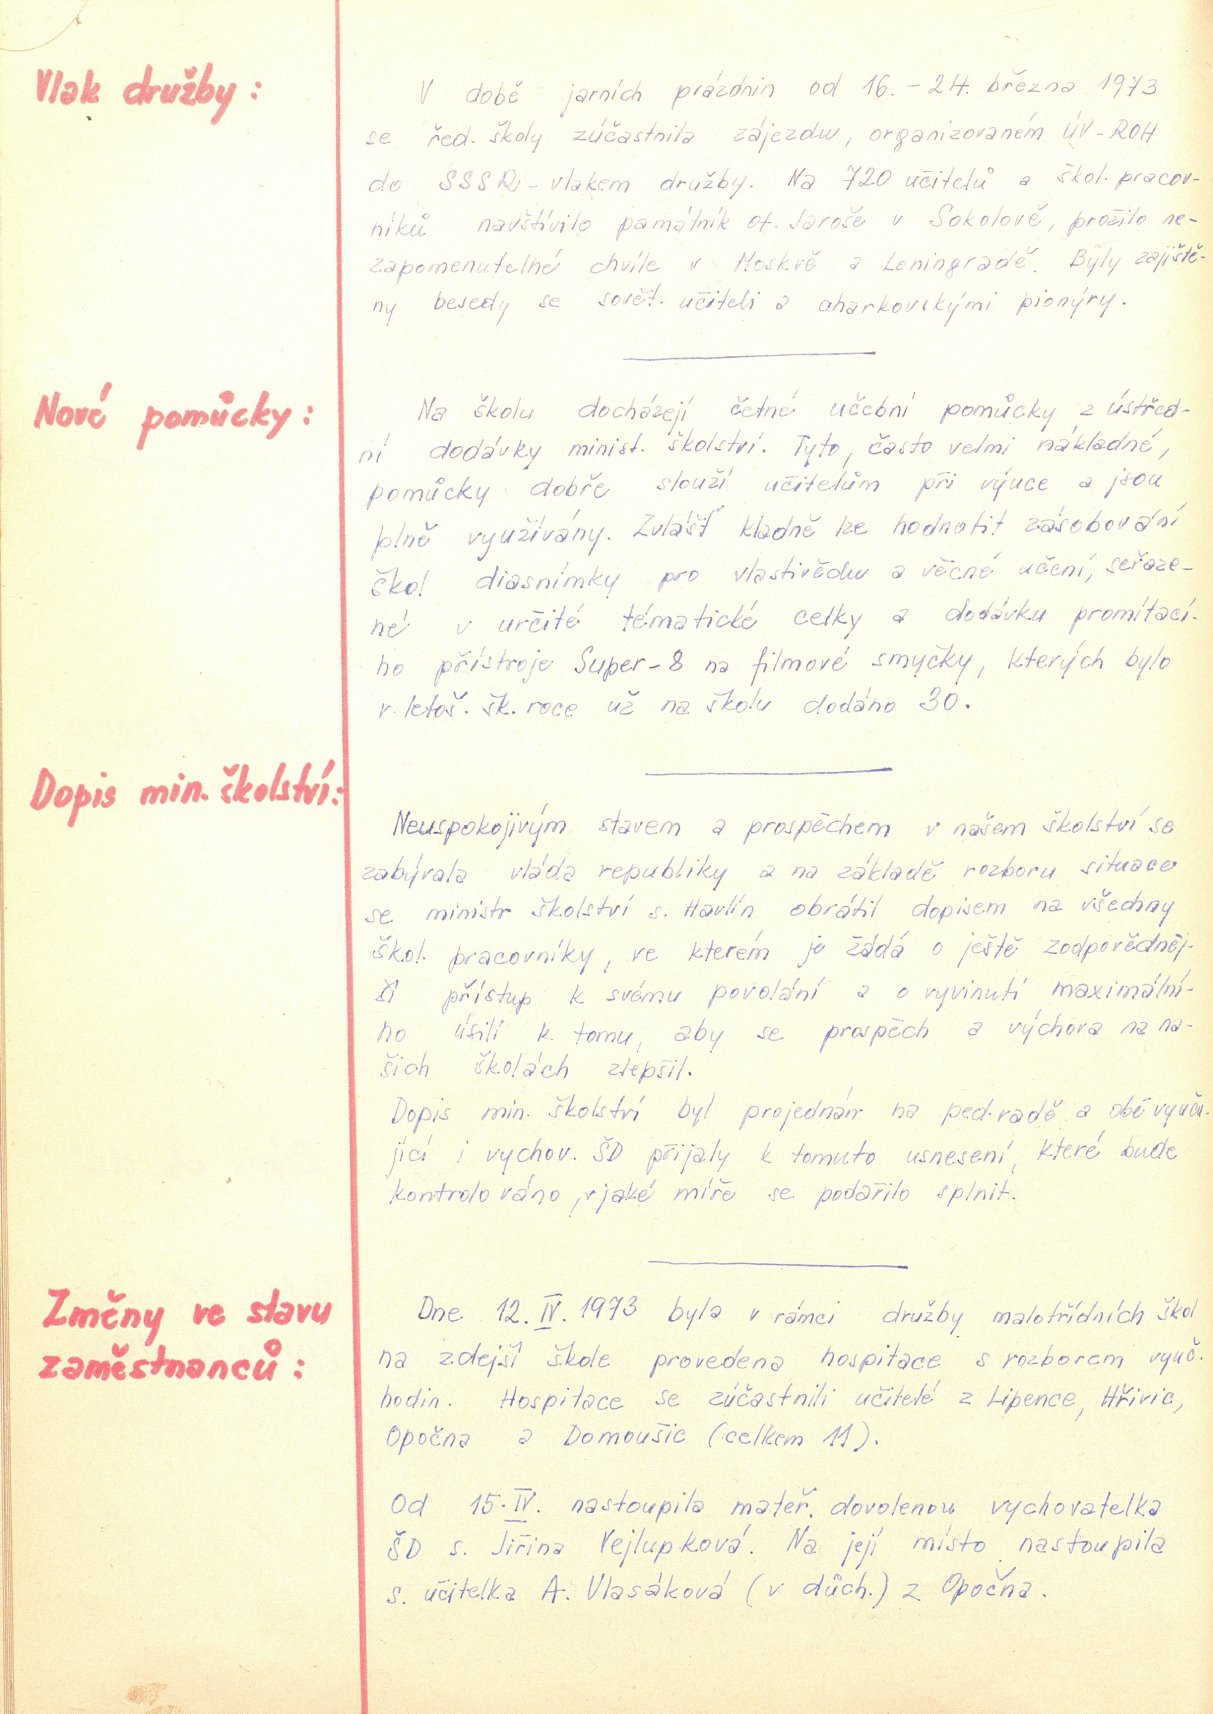 Vlak družby:
V době jarních prázdnin od 16. - 24. března 1973
se řed. školy zúčastnila zájezdu, organizovaném ÚV-ROH
do SSSR - vlakem družby. Na 720 učitelů a škol. pracov-
níků navštívilo památník ot. Jaroše v Sokolově, prožilo ne-
zapomenutelné chvíle v Moskvě a Leningradě. Byly zajiště-
ny besedy se sovět. učiteli a charkovskými pionýry.
Nové pomůcky:
Na školu docházejí četné učební pomůcky z ústřed-
ní dodávky minist. školství. Tyto, často velmi nákladné,
pomůcky dobře slouží učitelům při výuce a jsou
plně využívány. Zvlášť kladně lze hodnotit zásobování
škol diasnímky pro vlastivědu a věcné učení, seřaze-
né v určité tématické celky a dodávku promítací-
ho přístroje Super-8 na filmové smyčky, kterých bylo
v letoš. šk. roce už na školu dodáno 30.
Dopis min. školství:
Neuspokojivým stavem a prospěchem v našem školství se
zabývala vláda republiky a na základě rozboru situace
se ministr školství s. Havlín obrátil dopisem na všechny
škol. pracovníky, ve kterém je žádá o ještě zodpovědněj-
ší přístup k svému povolání a o vyvinutí maximální-
ho úsilí k tomu, aby se prospěch a výchova na na-
šich školách zlepšil.
Dopis min. školství byl projednán na ped. radě a obě vyuču-
jící i vychov. ŠD přijaly k tomuto usnesení, které bude
kontrolováno, v jaké míře se podařilo splnit.
Změny ve stavu
zaměstnanců:
Dne 12. IV. 1973 byla v rámci družby malotřídních škol
na zdejší škole provedena hospitace s rozborem vyuč.
hodin. Hospitace se zúčastnili učitelé z Lipence, Hřivic,
Opočna a Domoušic (celkem 11).
Od 15. IV. nastoupila mateř. dovolenou vychovatelka
ŠD s. Jiřina Vejlupková. Na její místo nastoupila
s. učitelka A. Vlasáková (v důch.) z Opočna.